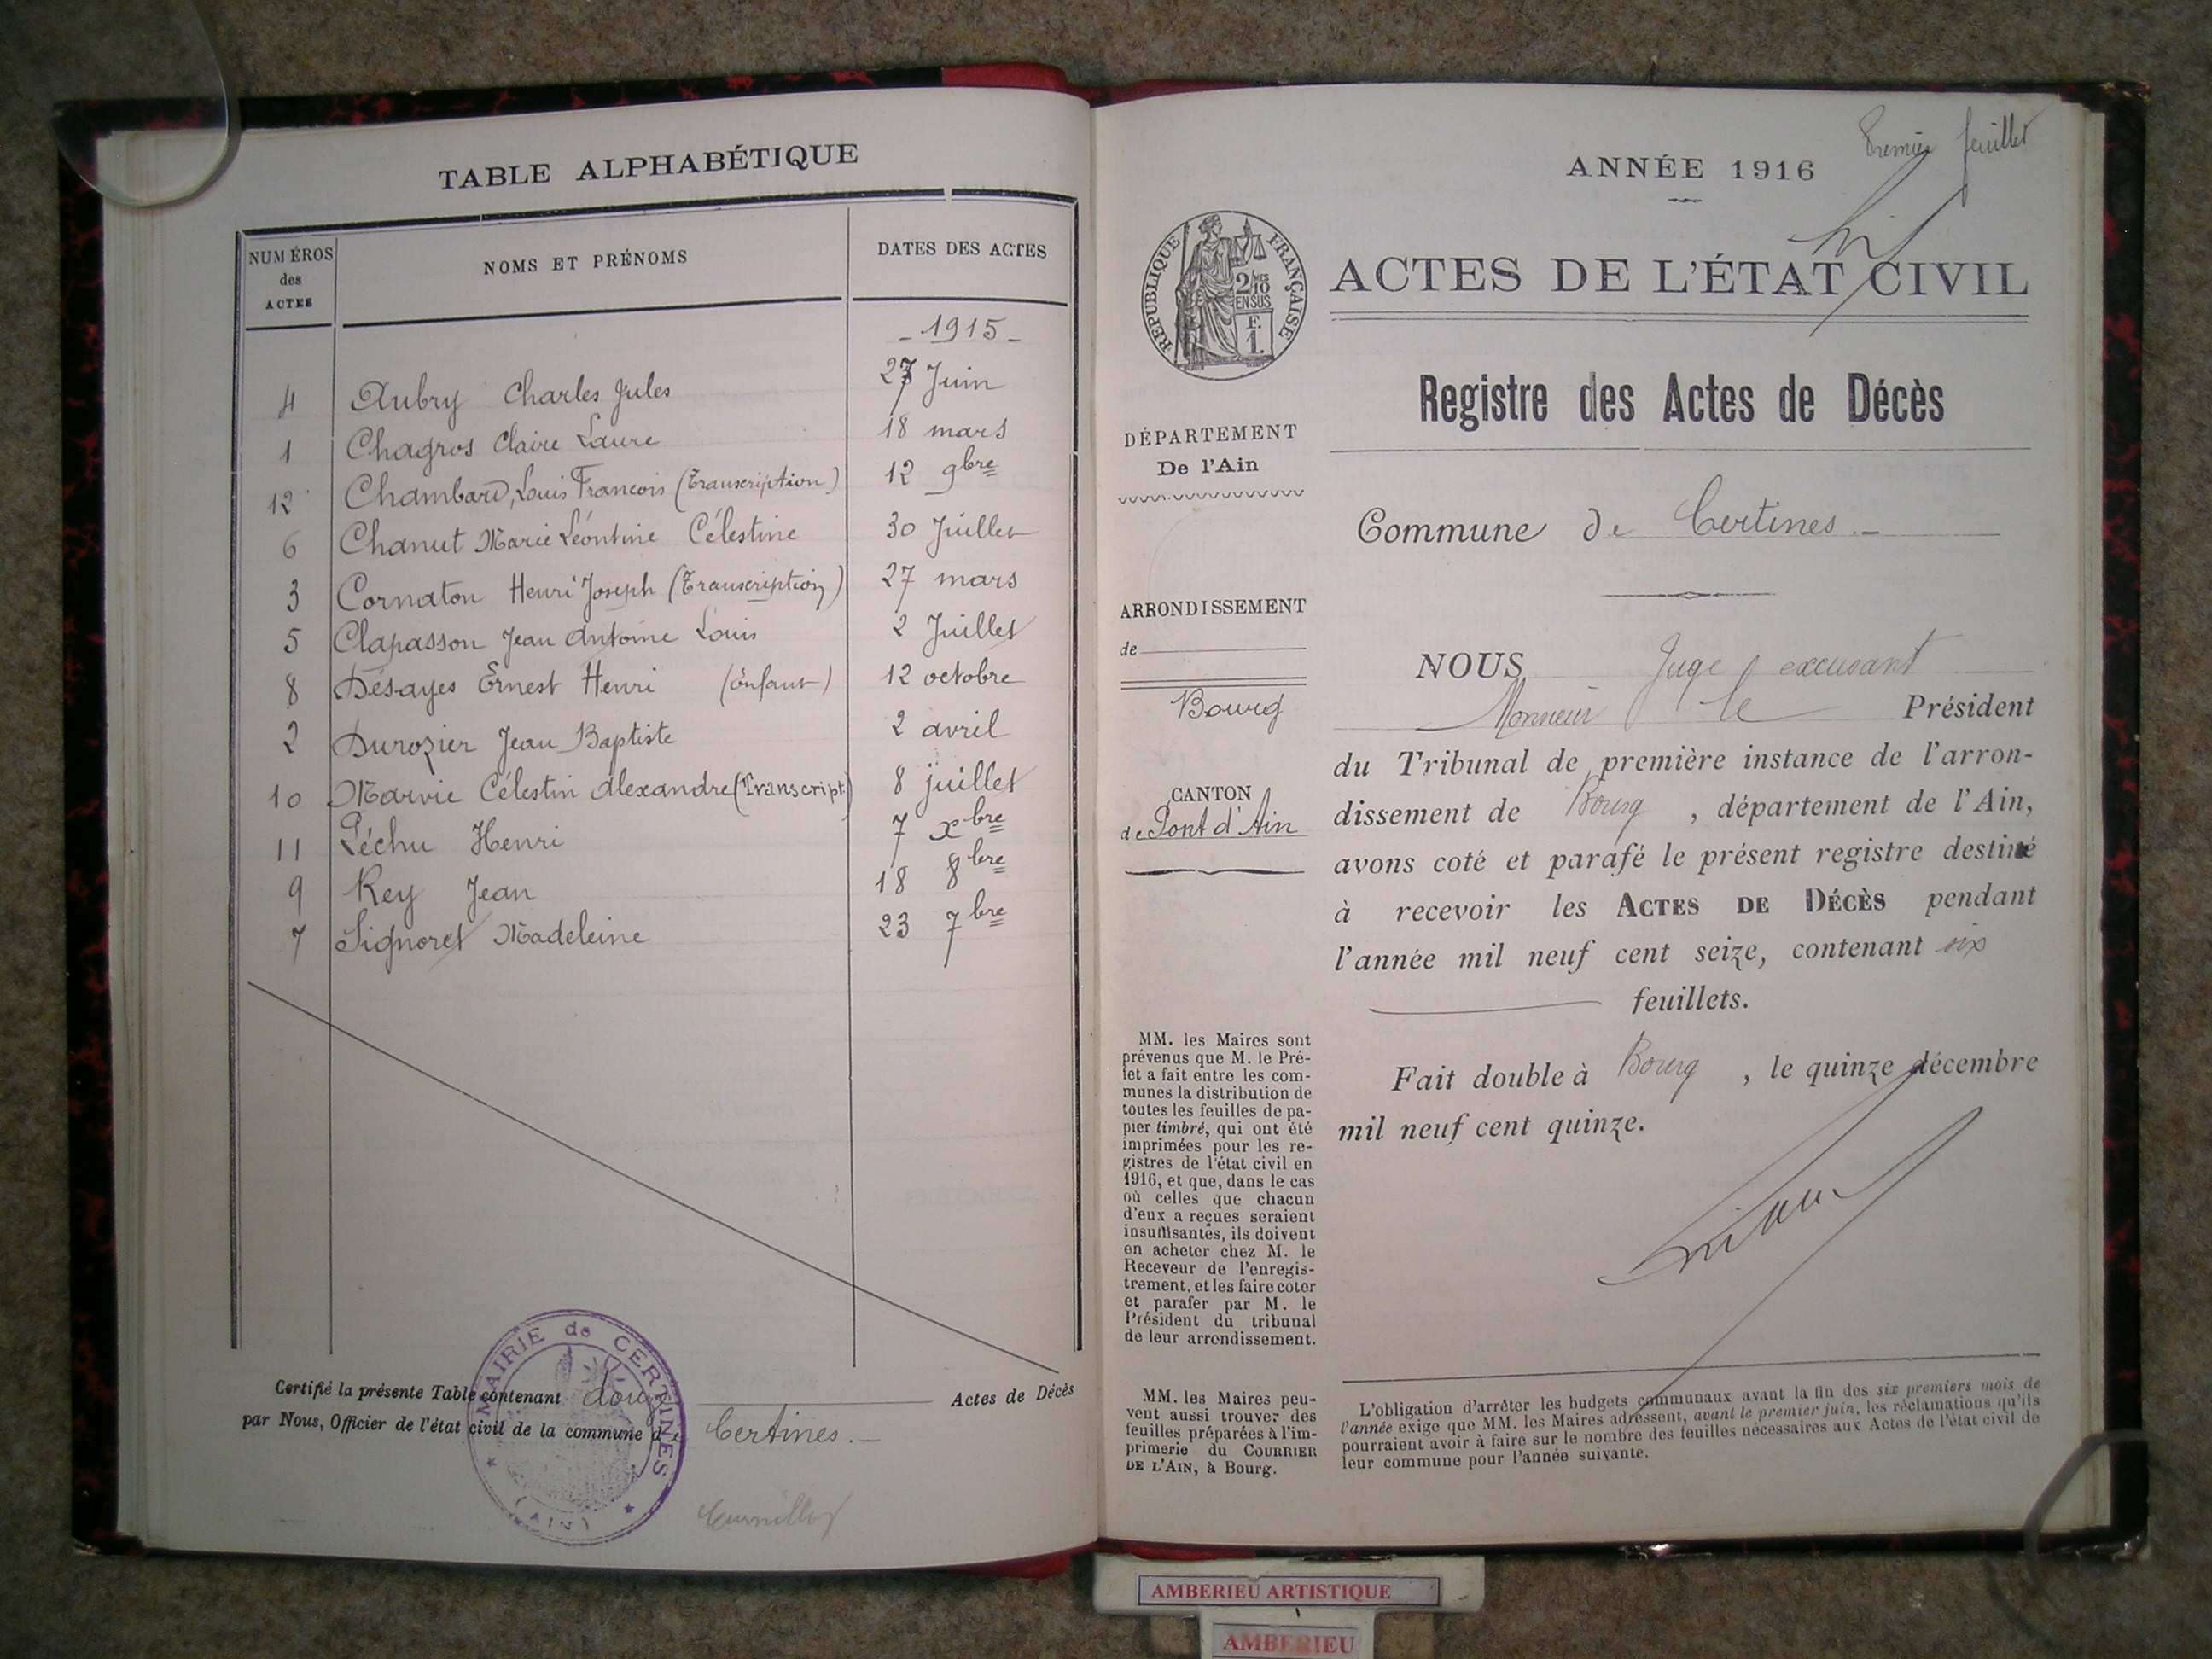 TABLE ALPHABÉTIQUE
NUMÉROS des ACTES
NOMS ET PRÉNOMS
DATES DES ACTES
- 1915 -
4 Aubry Charles Jules 27 Juin
1 Chagros Claire Laure 18 mars
12 Chambard, Louis Francois (Transcription) 12 9bre
6 Chanut Marie Léontine Célestine 30 Juillet
3 Cornaton Henri Joseph (Transcription) 27 mars
5 Clapasson Jean Antoine Louis 2 Juillet
8 Désayes Ernest Henri (Enfant) 12 octobre
2 Durozier Jean Baptiste 2 avril
10 Marvie Célestin Alexandre (Transcript) 8 juillet
11 Péchu Henri 7 xbre
9 Rey Jean 18 8bre
7 Signoret Madeleine 23 7bre
Certifié la présente Table contenant douze Actes de Décès
par Nous, Officier de l'état civil de la commune d Certines.-
MAIRIE de CERTINES
(AIN)
Premier feuillet
ANNÉE 1916
RÉPUBLIQUE FRANÇAISE
2/10 EN SUS
F. 1.
ACTES DE L'ÉTAT CIVIL
Registre des Actes de Décès
DÉPARTEMENT
De l'Ain
Commune de Certines.-
ARRONDISSEMENT
de
Bourg
CANTON
de Pont d'Ain
NOUS, Juge excusant
Monsieur le Président
du Tribunal de première instance de l'arron-
dissement de Bourg, département de l'Ain,
avons coté et parafé le présent registre destiné
à recevoir les ACTES DE DÉCÈS pendant
l'année mil neuf cent seize, contenant six
feuillets.
Fait double à Bourg, le quinze décembre
mil neuf cent quinze.
MM. les Maires sont
prévenus que M. le Pré-
fet a fait entre les com-
munes la distribution de
toutes les feuilles de pa-
pier timbré, qui ont été
imprimées pour les re-
gistres de l'état civil en
1916, et que, dans le cas
où celles que chacun
d'eux a reçues seraient
insuffisantes, ils doivent
en acheter chez M. le
Receveur de l'enregis-
trement, et les faire coter
et parafer par M. le
Président du tribunal
de leur arrondissement.
MM. les Maires peu-
vent aussi trouver des
feuilles préparées à l'im-
primerie du COURRIER
DE L'AIN, à Bourg.
L'obligation d'arrêter les budgets communaux avant la fin des six premiers mois de
l'année exige que MM. les Maires adressent, avant le premier juin, les réclamations qu'ils
pourraient avoir à faire sur le nombre des feuilles nécessaires aux Actes de l'état civil de
leur commune pour l'année suivante.
AMBERIEU ARTISTIQUE
AMBERIEU